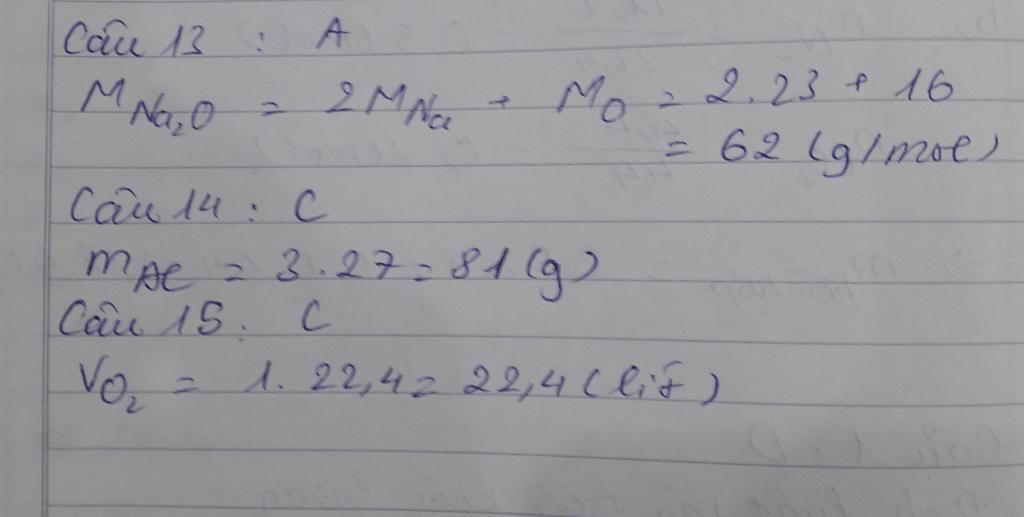 Câu 13 : A
M Na₂O = 2M Na + M O = 2.23 + 16
= 62 (g/mol)
Câu 14 : C
m Al = 3.27 = 81 (g)
Câu 15 : C
V O₂ = 1. 22,4 = 22,4 (lít)